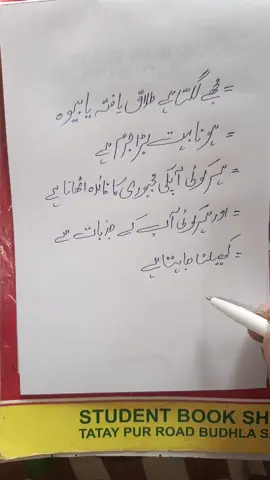 = مجھے لگتا ہے طلاق یافتہ یا بیوہ
= ہونا بہت بڑا جرم ہے
= ہر کوئی آپکی مجبوری کا فائدہ اٹھاتا ہے
= اور ہر کوئی آپ کے جذبات سے
= کھیلنا چاہتا ہے
STUDENT BOOK SH
TATAY PUR ROAD BUDHLA S